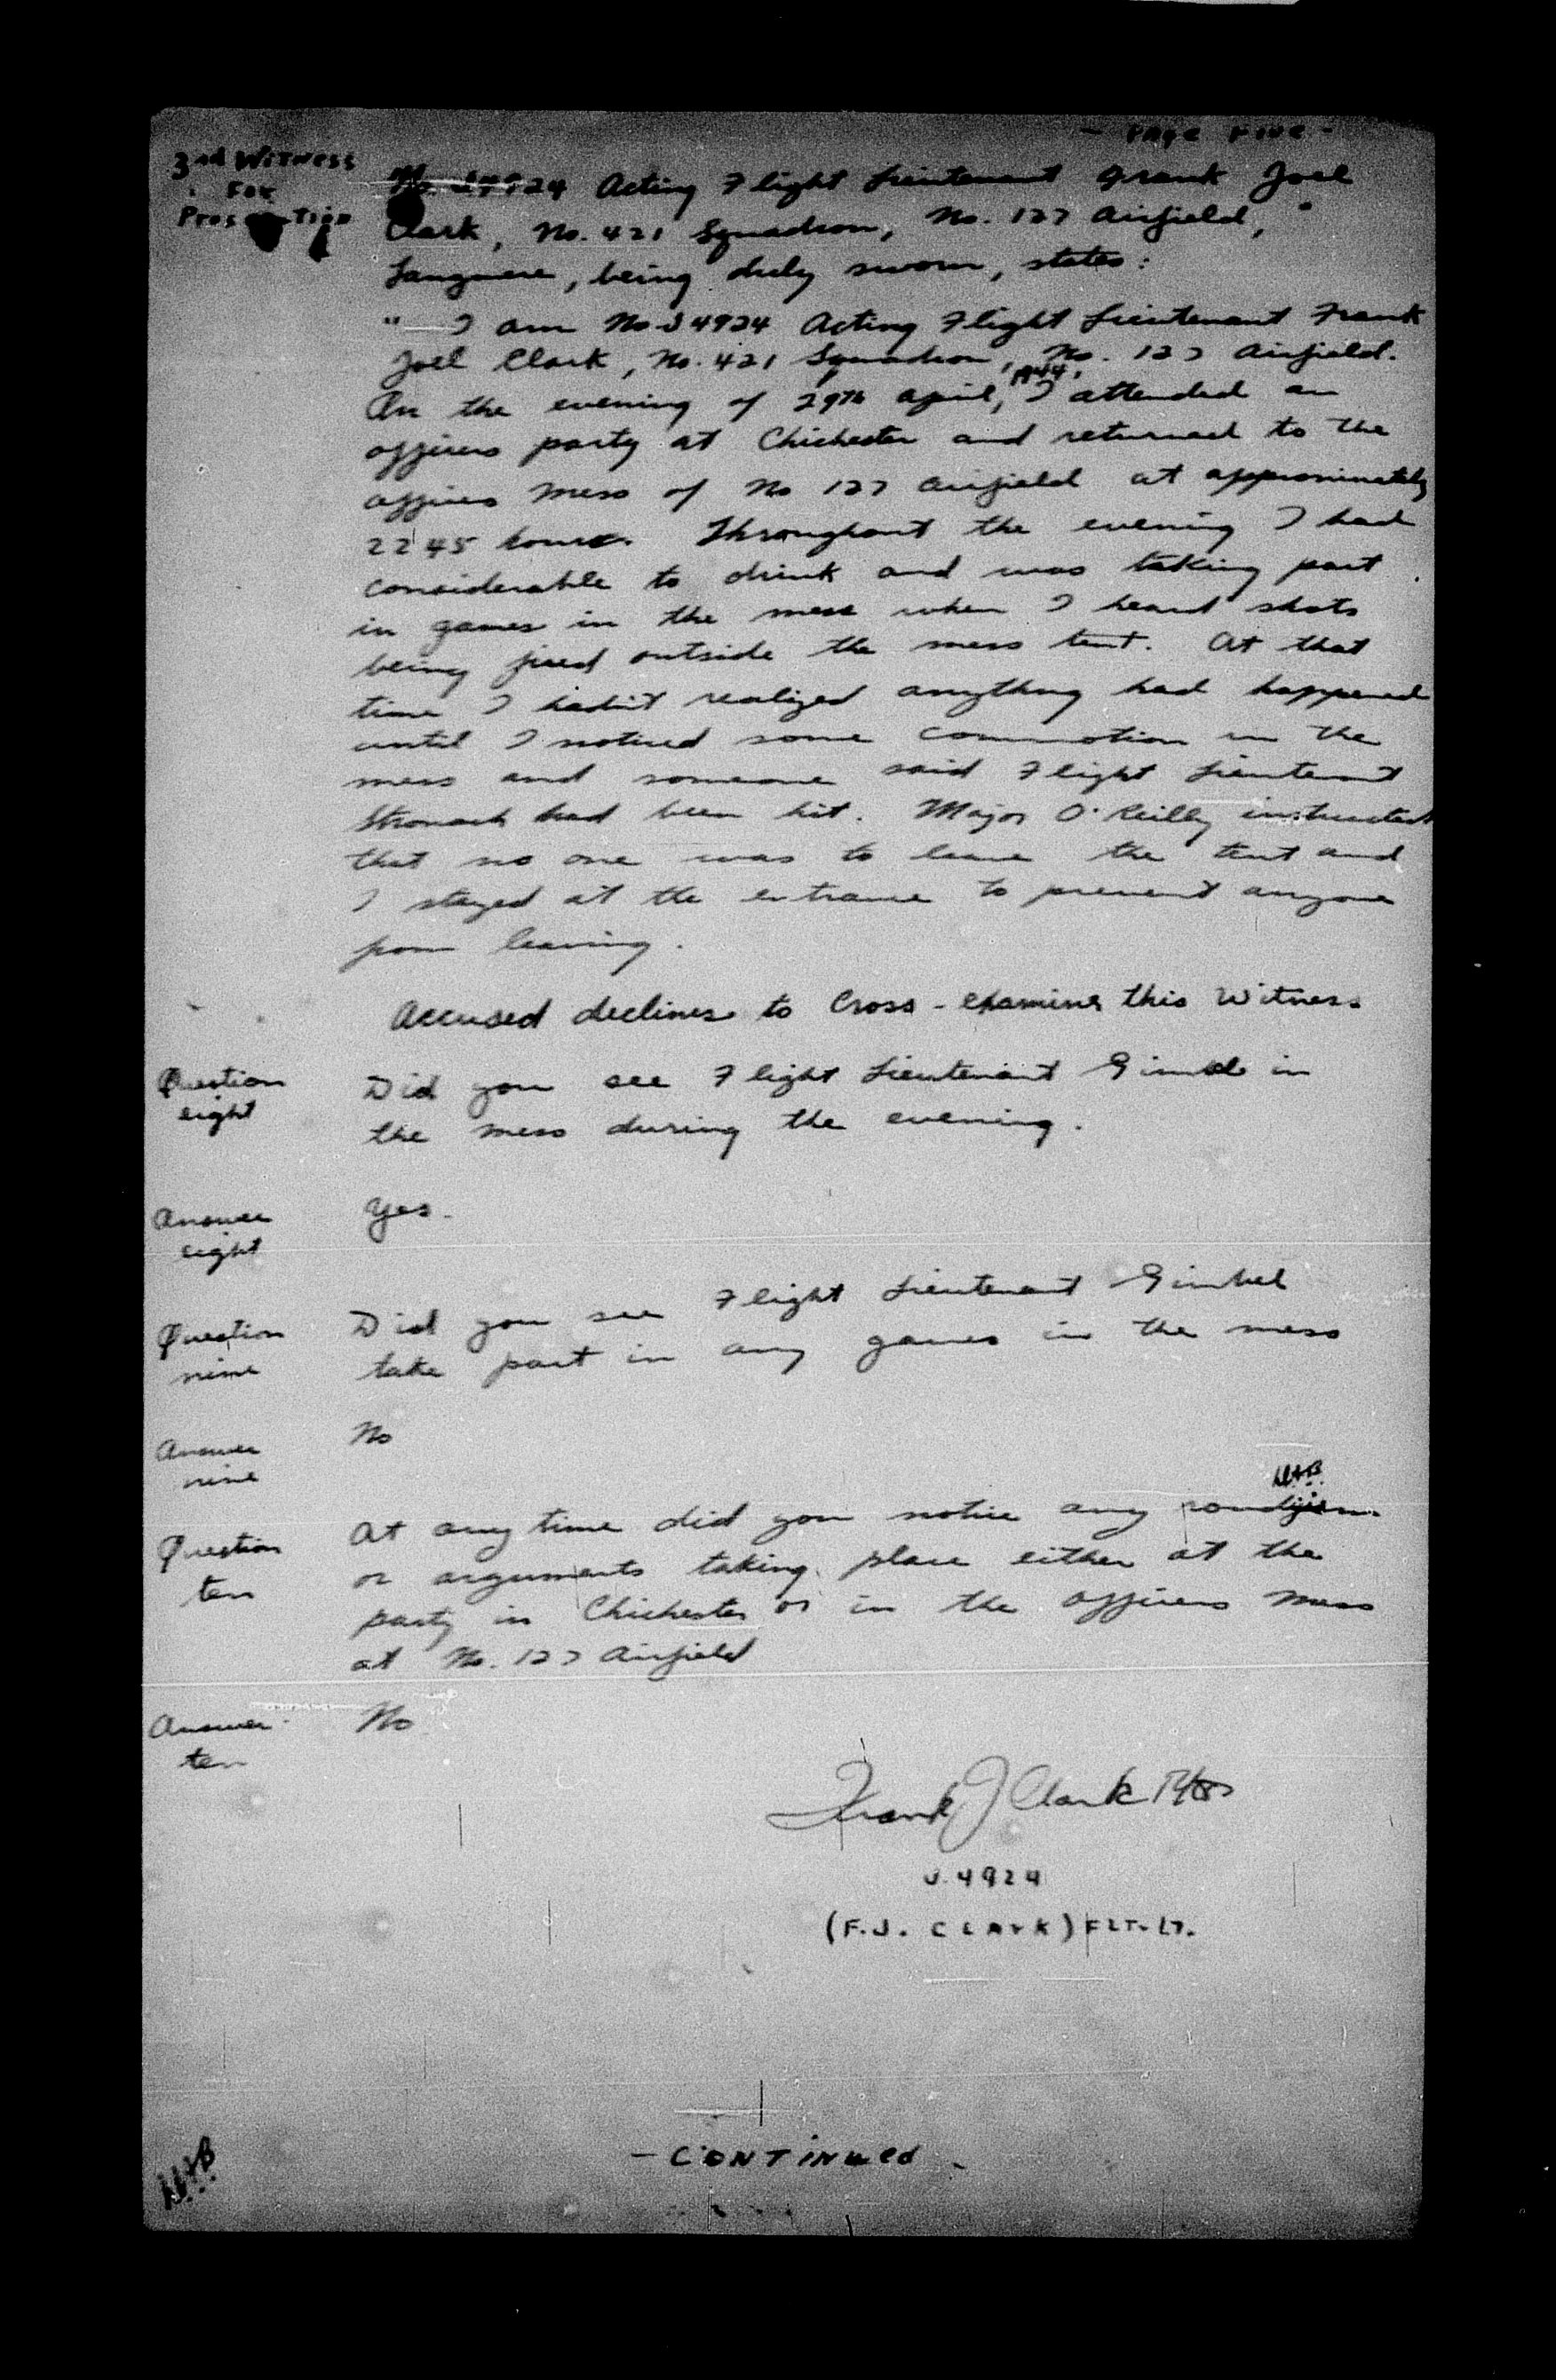 - Page Five -
3nd Witness
For
Pros tion
No. J4924 Acting Flight Lieutenant Frank Joel
Clark, No. 421 Squadron, No. 127 Airfield,
Tangmere, being duly sworn, states:
" I am No J4924 Acting Flight Lieutenant Frank
Joel Clark, No. 421 Squadron, No. 127 Airfield.
On the evening of 29th April, 1944, I attended an
officers party at Chichester and returned to the
officers mess of No 127 airfield at approximately
2245 hours. Throughout the evening I had
considerable to drink and was taking part
in games in the mess when I heard shots
being fired outside the mess tent. At that
time I hadn't realized anything had happened
until I noticed some commotion in the
mess and someone said Flight Lieutenant
had been hit. Major O'Reilly instructed
that no one was to leave the tent and
I stayed at the entrance to prevent anyone
from leaving.
Accused declines to Cross-examine this Witness
Question
eight
Did you see Flight Lieutenant Gimbel in
the mess during the evening.
Answer
eight
Yes.
Question
nine
Did you see Flight Lieutenant Gimbel
take part in any games in the mess
Answer
nine
No
Question
ten
At any time did you notice any
or arguments taking place either at the
party in Chichester or in the officers mess
at No. 127 Airfield
Answer
ten
No
Frank J Clark F/Lt
J.4924
(F.J. CLARK) FLT-LT.
- Continued -